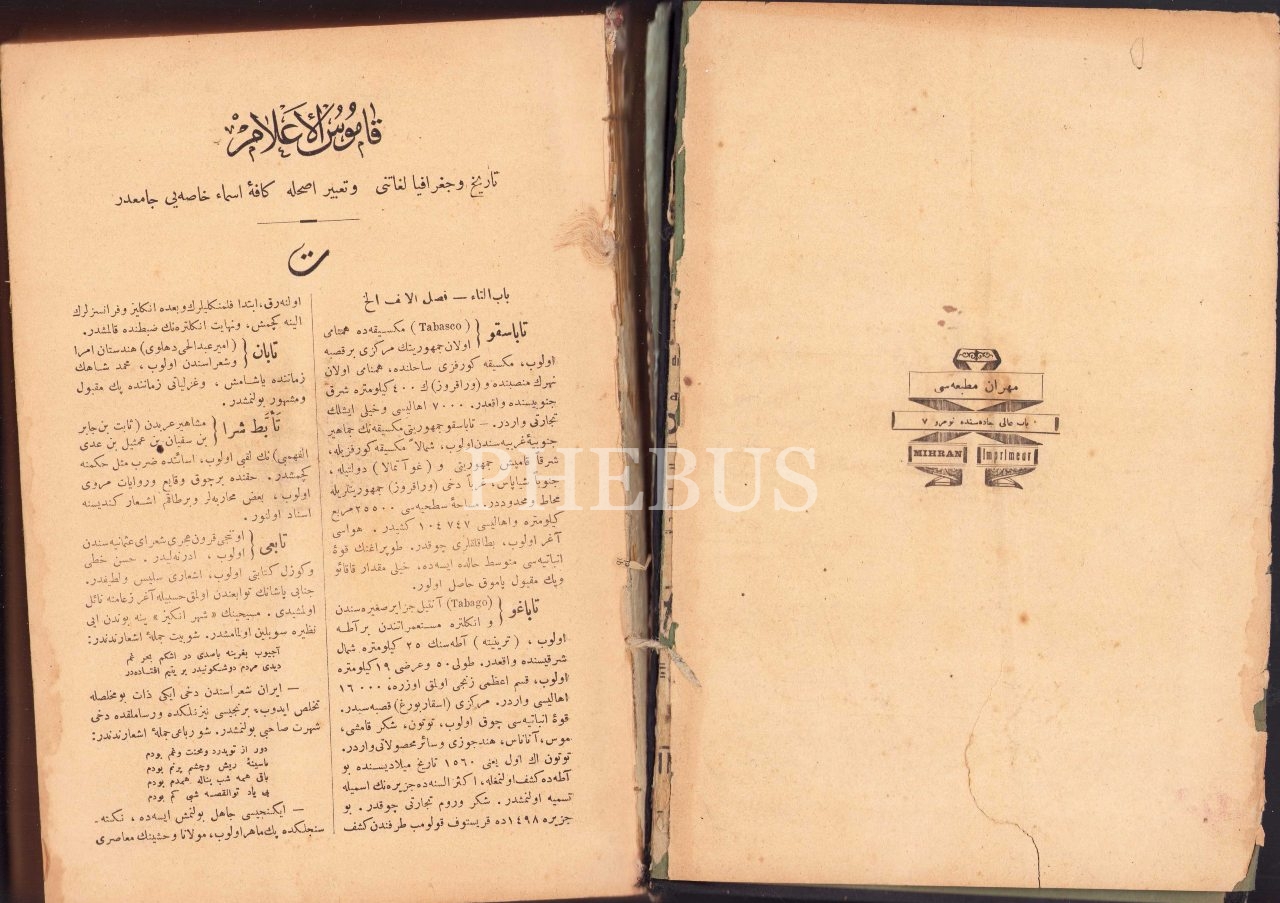 قاموس الأعلام
تاریخ وجغرافیا لغاتنی وتعبیر اصحله کافهٔ اسماء خاصه‌یی جامعدر
ت
باب التاء — فصل الالف الخ
تاباسقو { (Tabasco) مکسیقه‌ده همنامی
اولان جمهوریتك مرکزی برقصبه
اولوب، مکسیقه کورفزی ساحلنده، همنامی اولان
نهرك منصبنده و (ورافروز) ك ۴۰۰ کیلومتره شرق
جنوبیسنده واقعدر. ۷۰۰۰ اهالیسی وخیلی ایشلك
تجارتی واردر. — تاباسقو جمهوریتی مکسیقه‌نك جماهیر
جنوبیهٔ غربیه‌سندن اولوب، شمالاً مکسیقه کورفزیله،
شرقاً قامپش جمهوریتی و (غواتمالا) دولتیله،
جنوباً شیاپاس، غرباً دخی (ورافروز) جمهوریتلریله
محاط ومحدوددر. مساحهٔ سطحیه‌سی ۲۵۵۰۰ مربع
کیلومتره واهالیسی ۱۰۴۷۴۷ کشیدر. هواسی
آغر اولوب، بطاقلقلری چوقدر. طوپراغنك قوهٔ
انباتیه‌سی متوسط حالده ایسه‌ده، خیلی مقدار قاقائو
وپك مقبول پاموق حاصل اولور.
تاباغو { (Tabago) آنتیل جزایر صغیره‌سندن
و انکلتره مستعمراتندن برآطه
اولوب، (ترینیته) آطه‌سنك ۲۵ کیلومتره شمال
شرقیسنده واقعدر. طولی ۵۰ وعرضی ۱۹ کیلومتره
اولوب، قسم اعظمی زنجی اولمق اوزره، ۱۶۰۰۰
اهالیسی واردر. مرکزی (اسقاربورغ) قصبه‌سیدر.
قوهٔ انباتیه‌سی چوق اولوب، توتون، شکر قامشی،
موس، آناناس، هندجوزی وسائر محصولاتی واردر.
توتون اك اول یعنی ۱۵۶۰ تاریخ میلادیسنده بو
آطه‌ده کشف اولنمغله، اکثر السنه‌ده جزیره‌نك اسمیله
تسمیه اولنمشدر. شکر وروم تجارتی چوقدر. بو
جزیره ۱۴۹۸ ده قریستوف قولومب طرفندن کشف
اولنه‌رق، ابتدا فلمنکلیلرك وبعده انکلیز وفرانسزلرك
الینه کچمش، ونهایت انکلتره‌نك ضبطنده قالمشدر.
تابان { (امیر عبدالحی دهلوی) هندستان امرا
وشعراسندن اولوب، محمد شاهك
زماننده یاشامش، وغزلیاتی زماننده پك مقبول
ومشهور بولنمشدر.
تأبّط شرا { مشاهیر عربدن (ثابت بن جابر
بن سفیان بن عمیثل بن عدی
الفهمی) نك لقبی اولوب، اسائنده ضرب مثل حکمنه
کچمشدر. حقنده برچوق وقایع وروایات مروی
اولوب، بعض محاربه‌لر وبرطاقم اشعار کندیسنه
اسناد اولنور.
تابعی { اوننجی قرون هجری شعرای عثمانیه‌سندن
اولوب، ادرنه‌لیدر. حسن خطی
وکوزل کتابتی اولوب، اشعاری سلیس ولطیفدر.
جنابی پاشانك توابعندن اولمق حسبیله آغر زعامته نائل
اولمشیدی. مسیحینك «شهر انکیز» ینه بوندن ایی
نظیره سویلین اولمامشدر. شو بیت جملهٔ اشعارندندر:
آجیوب بغرینه باصدی در اشکم بحر غم
دیدی مردم دوشکونیدر بر یتیم افتاده‌در
— ایران شعراسندن دخی ایکی ذات بو مخلصله
تخلص ایدوب، برنجیسی نیزنلکده ورساملقده دخی
شهرت صاحبی بولنمشدر. شو رباعی جملهٔ اشعارندندر:
دور از تو بدرد ومحنت وغم بودم
باسینهٔ ریش وچشم پرنم بودم
باقی همه شب بناله همدم بودم
بی یاد تو القصه شبی کم بودم
— ایکنجیسی جاهل بولنمش ایسه‌ده، نکته‌ـ
سنجلکده پك ماهر اولوب، مولانا وحشینك معاصری
مهران مطبعه‌سی
باب عالی جاده‌سنده نومرو ۷
MIHRAN Imprimeur
PHEBUS